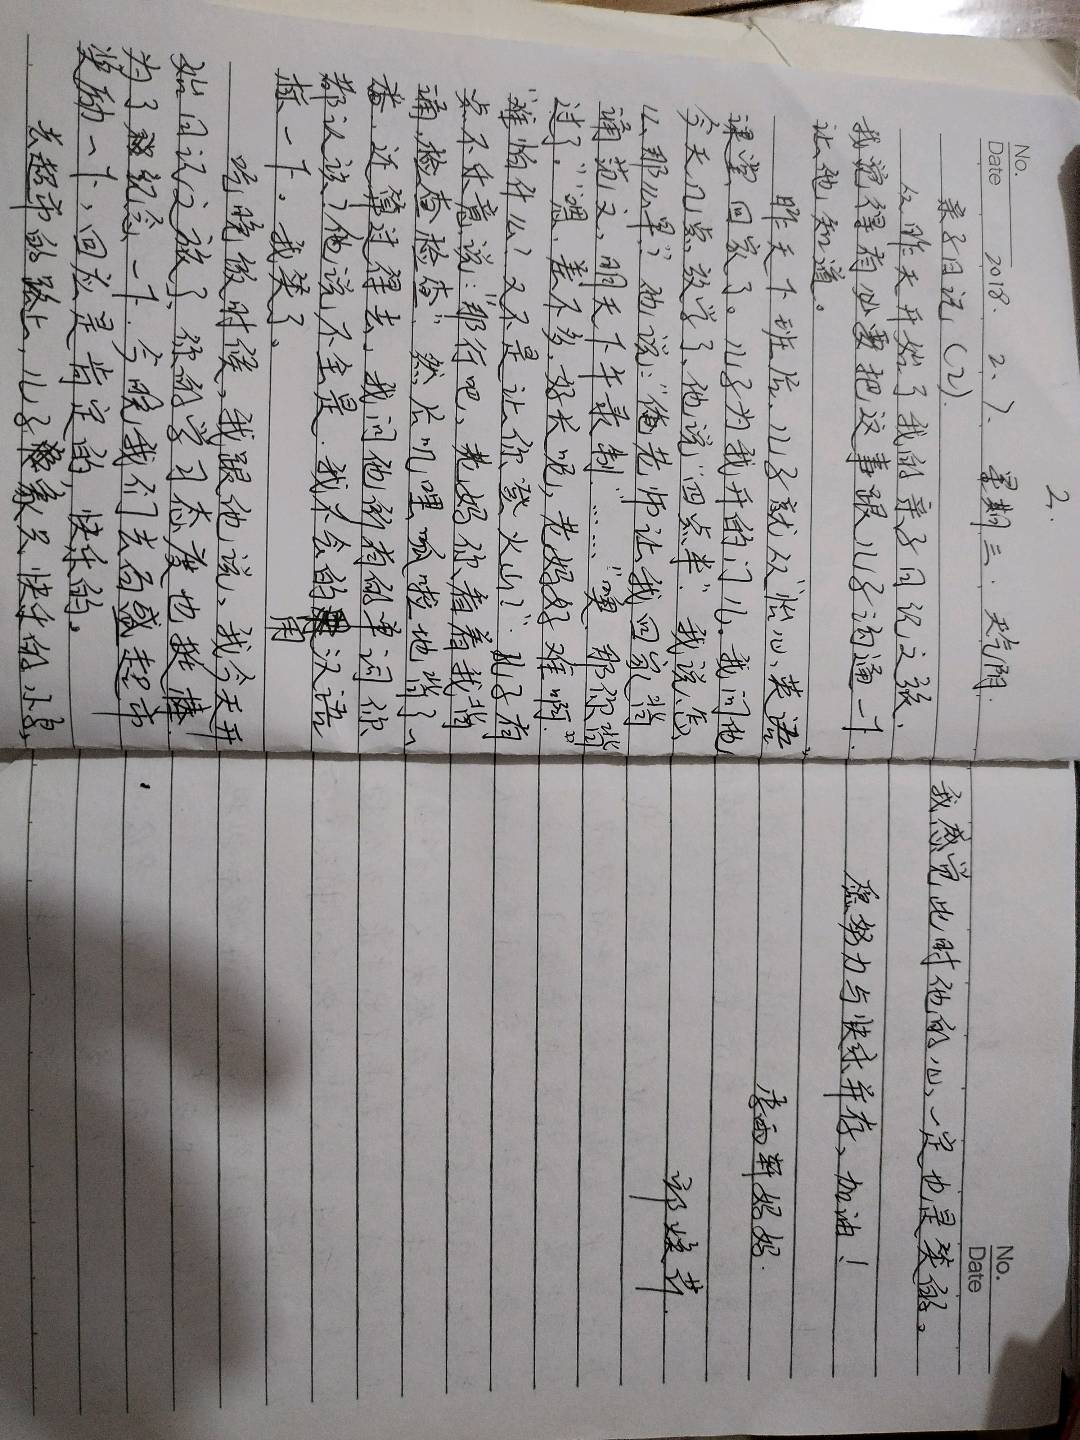 2.
No.
Date 2018. 2. 7. 星期三. 天气阴.
亲子日记.(2).
从昨天开始了我的亲子日记之旅.
我觉得有必要把这事跟儿子沟通一下.
让他知道。
昨天下班后、儿子就从“怡心、英语”
课堂回家了。儿子为我开的门儿。我问他
今天几点放学了、他说“四点半”. 我说怎
么那么早?”他说:“俺老师让我回家背
诵范文,明天下午录制.”……“噢.那你背
过了.”“嗯.差不多.好长呢,老妈好难啊.”
“难怕什么?又不是让你登火山?”.儿子有
点不乐意说:“那行吧,老妈你看着我背
诵.检查检查”.然后叽哩呱啦地背了一
番.还算过得去.我问他所有的单词你
都认识?他说不全是.我不会的用汉语
标一下。我笑了。
吃晚饭时候,我跟他说、我今天开
始日记之旅了.你的学习态度也挺棒.
为了纪念一下.今晚我们去佰盛超市
奖励一下,回应是肯定的,快乐的。
去超市的路上,儿子像家只快乐的小鸟,
No.
Date
我感觉此时他的心、一定也是笑的。
愿努力与快乐并存、加油!
李雨轩妈妈.